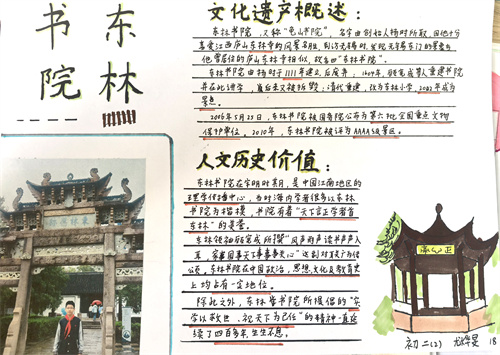 东林
书院
文化遗产概述：
东林书院，又称“龟山书院”，名字由创始人杨时所取，因他十分
喜爱江西庐山东林寺的风景名胜，
他曾居住的庐山东林寺相似，故名曰“东林书院”。
东林书院由杨时于1111年建立，后废弃，1604年，顾宪成等人重建书院
并在此讲学，直后来又被拆毁；清代重建，改为东林小学，2002年成为
景点。
2006年5月25日，东林书院被国务院公布为第六批全国重点文物
保护单位。2010年，东林书院被评为AAAA级景区。
人文历史价值：
东林书院在宋明时期，是中国江南地区的
理学传播中心，当时海内学者很多以东林
书院为楷模，书院有着“天下言正学者首
东林”的美誉。
东林领袖顾宪成所撰“风声雨声读书声声声入
耳，家事国事天下事事事关心”这副对联广为传
颂。东林书院在中国政治、思想、文化及教育史
上均占有一定地位。
除此之外，东林书院所提倡的“实
学以救世，视天下为己任”的精神一直延
续了四百多年，生生不息。
初二(2)
18